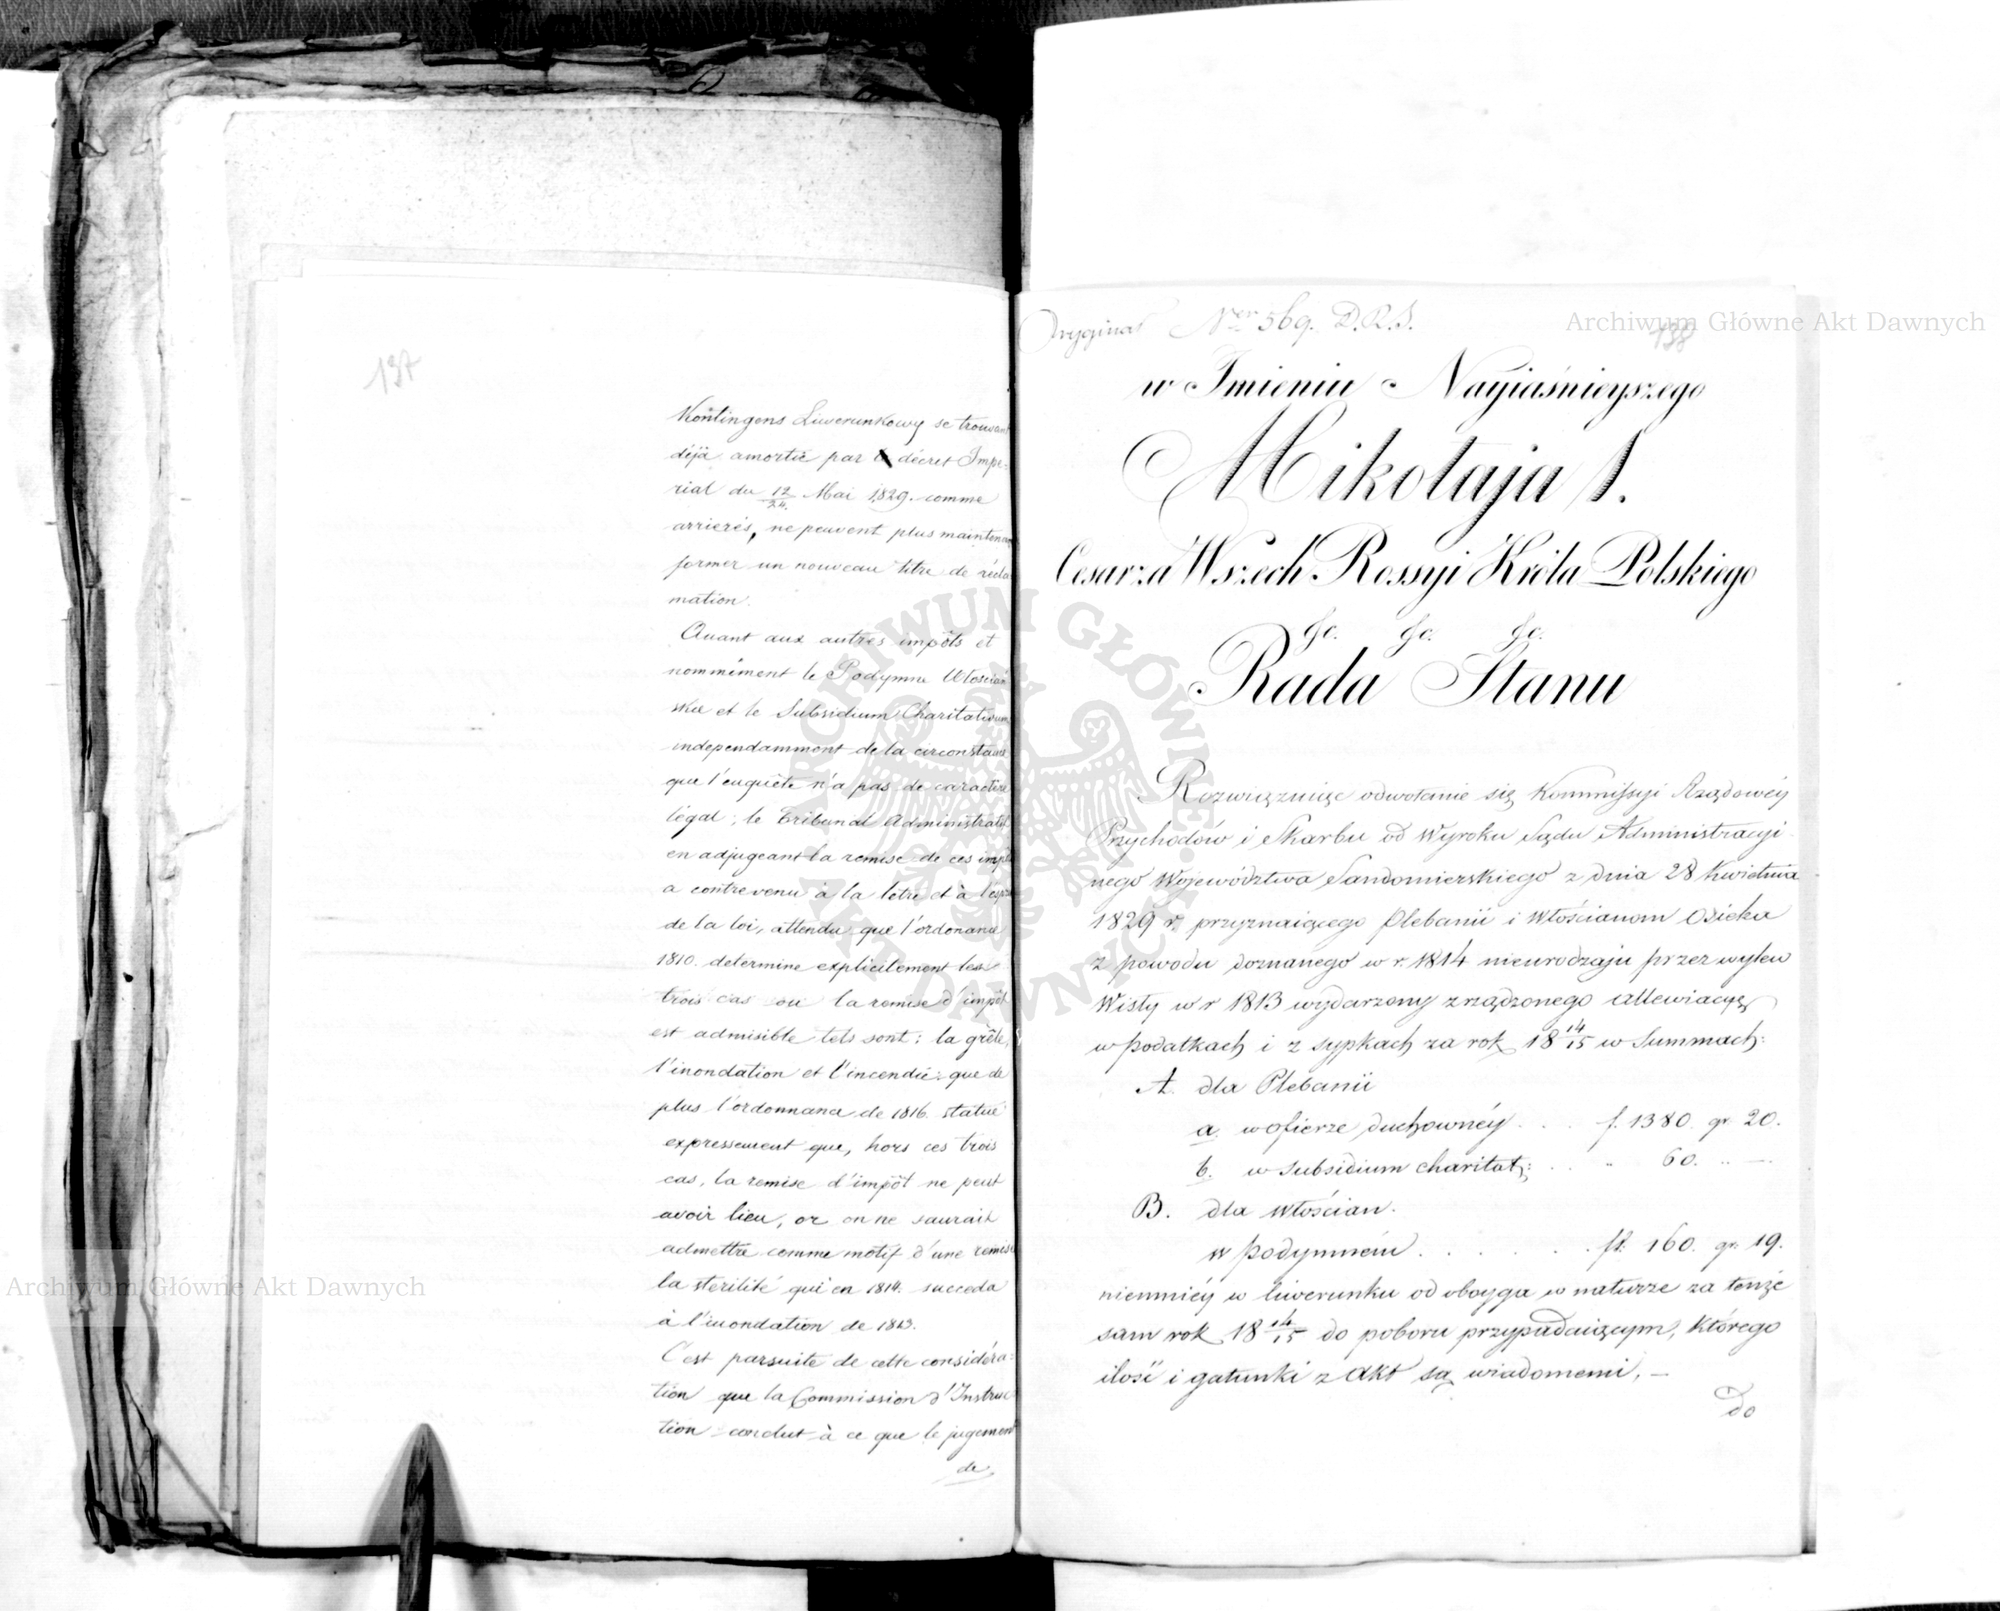 137
Kontingens Liwerunkowy se trouvant
déjà amortie par décret Impe-
rial du 12/24. Mai 1829. comme
arrierés, ne peuvent plus maintenant
former un nouveau titre de récla
mation.
Quant aux autres impôts et
nommément le Podymne Włościań
skie et le Subsidium Charitativum
independamment de la circonstance
que l'enquête n'a pas de caractère
légal, le Tribunal Administratif
en adjugeant la remise de ces impôts
a contrevenu à la lettre et à l'esprit
de la loi, attendu que l'ordonance
1810. determine explicitement les
trois cas ou la remise d'impôt
est admisible tels sont: la grêle,
l'inondation et l'incendie: que de
plus l'ordonnance de 1816. statue
expressement que, hors ces trois
cas, la remise d'impôt ne peut
avoir lieu, or on ne saurait
admettre comme motif d'une remise
la sterilité qui en 1814. succeda
à l'inondation de 1813.
C'est parsuite de cette considéra=
tion que la Commission d'Instruc
tion conclut à ce que le jugement
de
Oryginał Ner 569. D.R.S.
138
w Imieniu Nayiaśnieyszego
Mikołaja I.
Cesarza Wszech Rossyi Króla Polskiego
&c. &c. &c.
Rada Stanu
Rozwiązuiąc odwołanie się Kommissyi Rządowéy
Przychodów i Skarbu od Wyroku Sądu Administracyi
nego Województwa Sandomierskiego z dnia 28 Kwietnia
1829 r. przyznaiącego Plebanii i Włościanom Osieka
z powodu doznanego w r. 1814 nieurodzaju przez wylew
Wisły w r 1813 wydarzony zrządzonego allewiacyę
w podatkach i z sypkach za rok 18 14/15 w Summach:
A. dla Plebanii
a. w ofierze duchownéy . . . f. 1380. gr. 20.
b. w subsidium charitat: . . " 60. " —
B. dla włościan.
w podymném . . . . . . . fl. 160. gr. 19.
niemniéy w liwerunku od oboyga w naturze za tenże
sam rok 18 14/15 do poboru przypadaiącym, którego
ilość i gatunki z Akt są wiadomemi, —
Do
Archiwum Główne Akt Dawnych
Archiwum Główne Akt Dawnych
ARCHIWUM GŁÓWNE AKT DAWNYCH